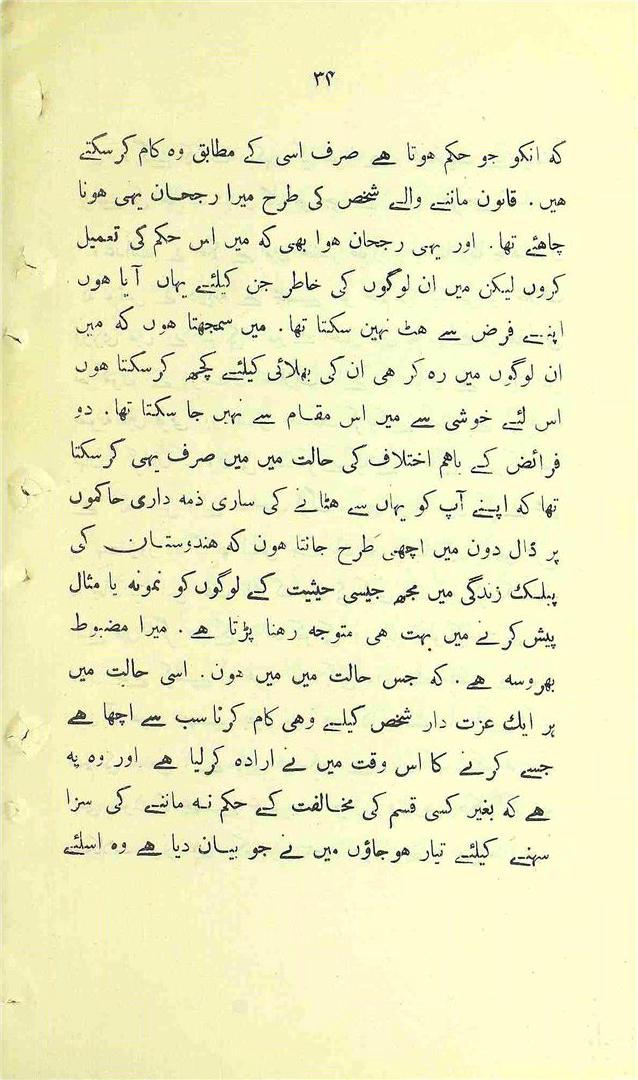 ۳۴
که انکو جو حکم هوتا هے صرف اسی کے مطابق وه کام کرسکتے
هیں . قانون ماننے والے شخص کی طرح میرا رجحان یهی هونا
چاهئے تها . اور یهی رجحان هوا بهی که میں اس حکم کی تعمیل
کروں لیکن میں ان لوگوں کی خاطر جن کیلئے یهاں آیا هوں
اپنے فرض سے هٹ نهین سکتا تها . میں سمجهتا هوں که میں
ان لوگوں میں ره کر هی ان کی بهلائی کیلئے کچهه کرسکتا هوں
اس لئے خوشی سے میں اس مقام سے نهیں جا سکتا تها . دو
فرائض کے باهم اختلاف کی حالت میں میں صرف یهی کرسکتا
تها که اپنے آپ کو یهاں سے هٹانے کی ساری ذمه داری حاکموں
پر ڈال دون میں اچهی طرح جانتا هون که هندوستان کی
پبلک زندگی میں مجهه جیسی حیثیت کے لوگوں کو نمونه یا مثال
پیش کرنے میں بهت هی متوجه رهنا پڑتا هے . میرا مضبوط
بهروسه هے . که جس حالت میں میں هون . اسی حالت میں
هر ایک عزت دار شخص کیلے وهی کام کرنا سب سے اچها هے
جسے کرنے کا اس وقت میں نے اراده کرلیا هے اور وه یه
هے که بغیر کسی قسم کی مخالفت کے حکم نه ماننے کی سزا
سہنے کیلئے تیار هوجاؤں میں نے جو بیان دیا هے وه اسلئے